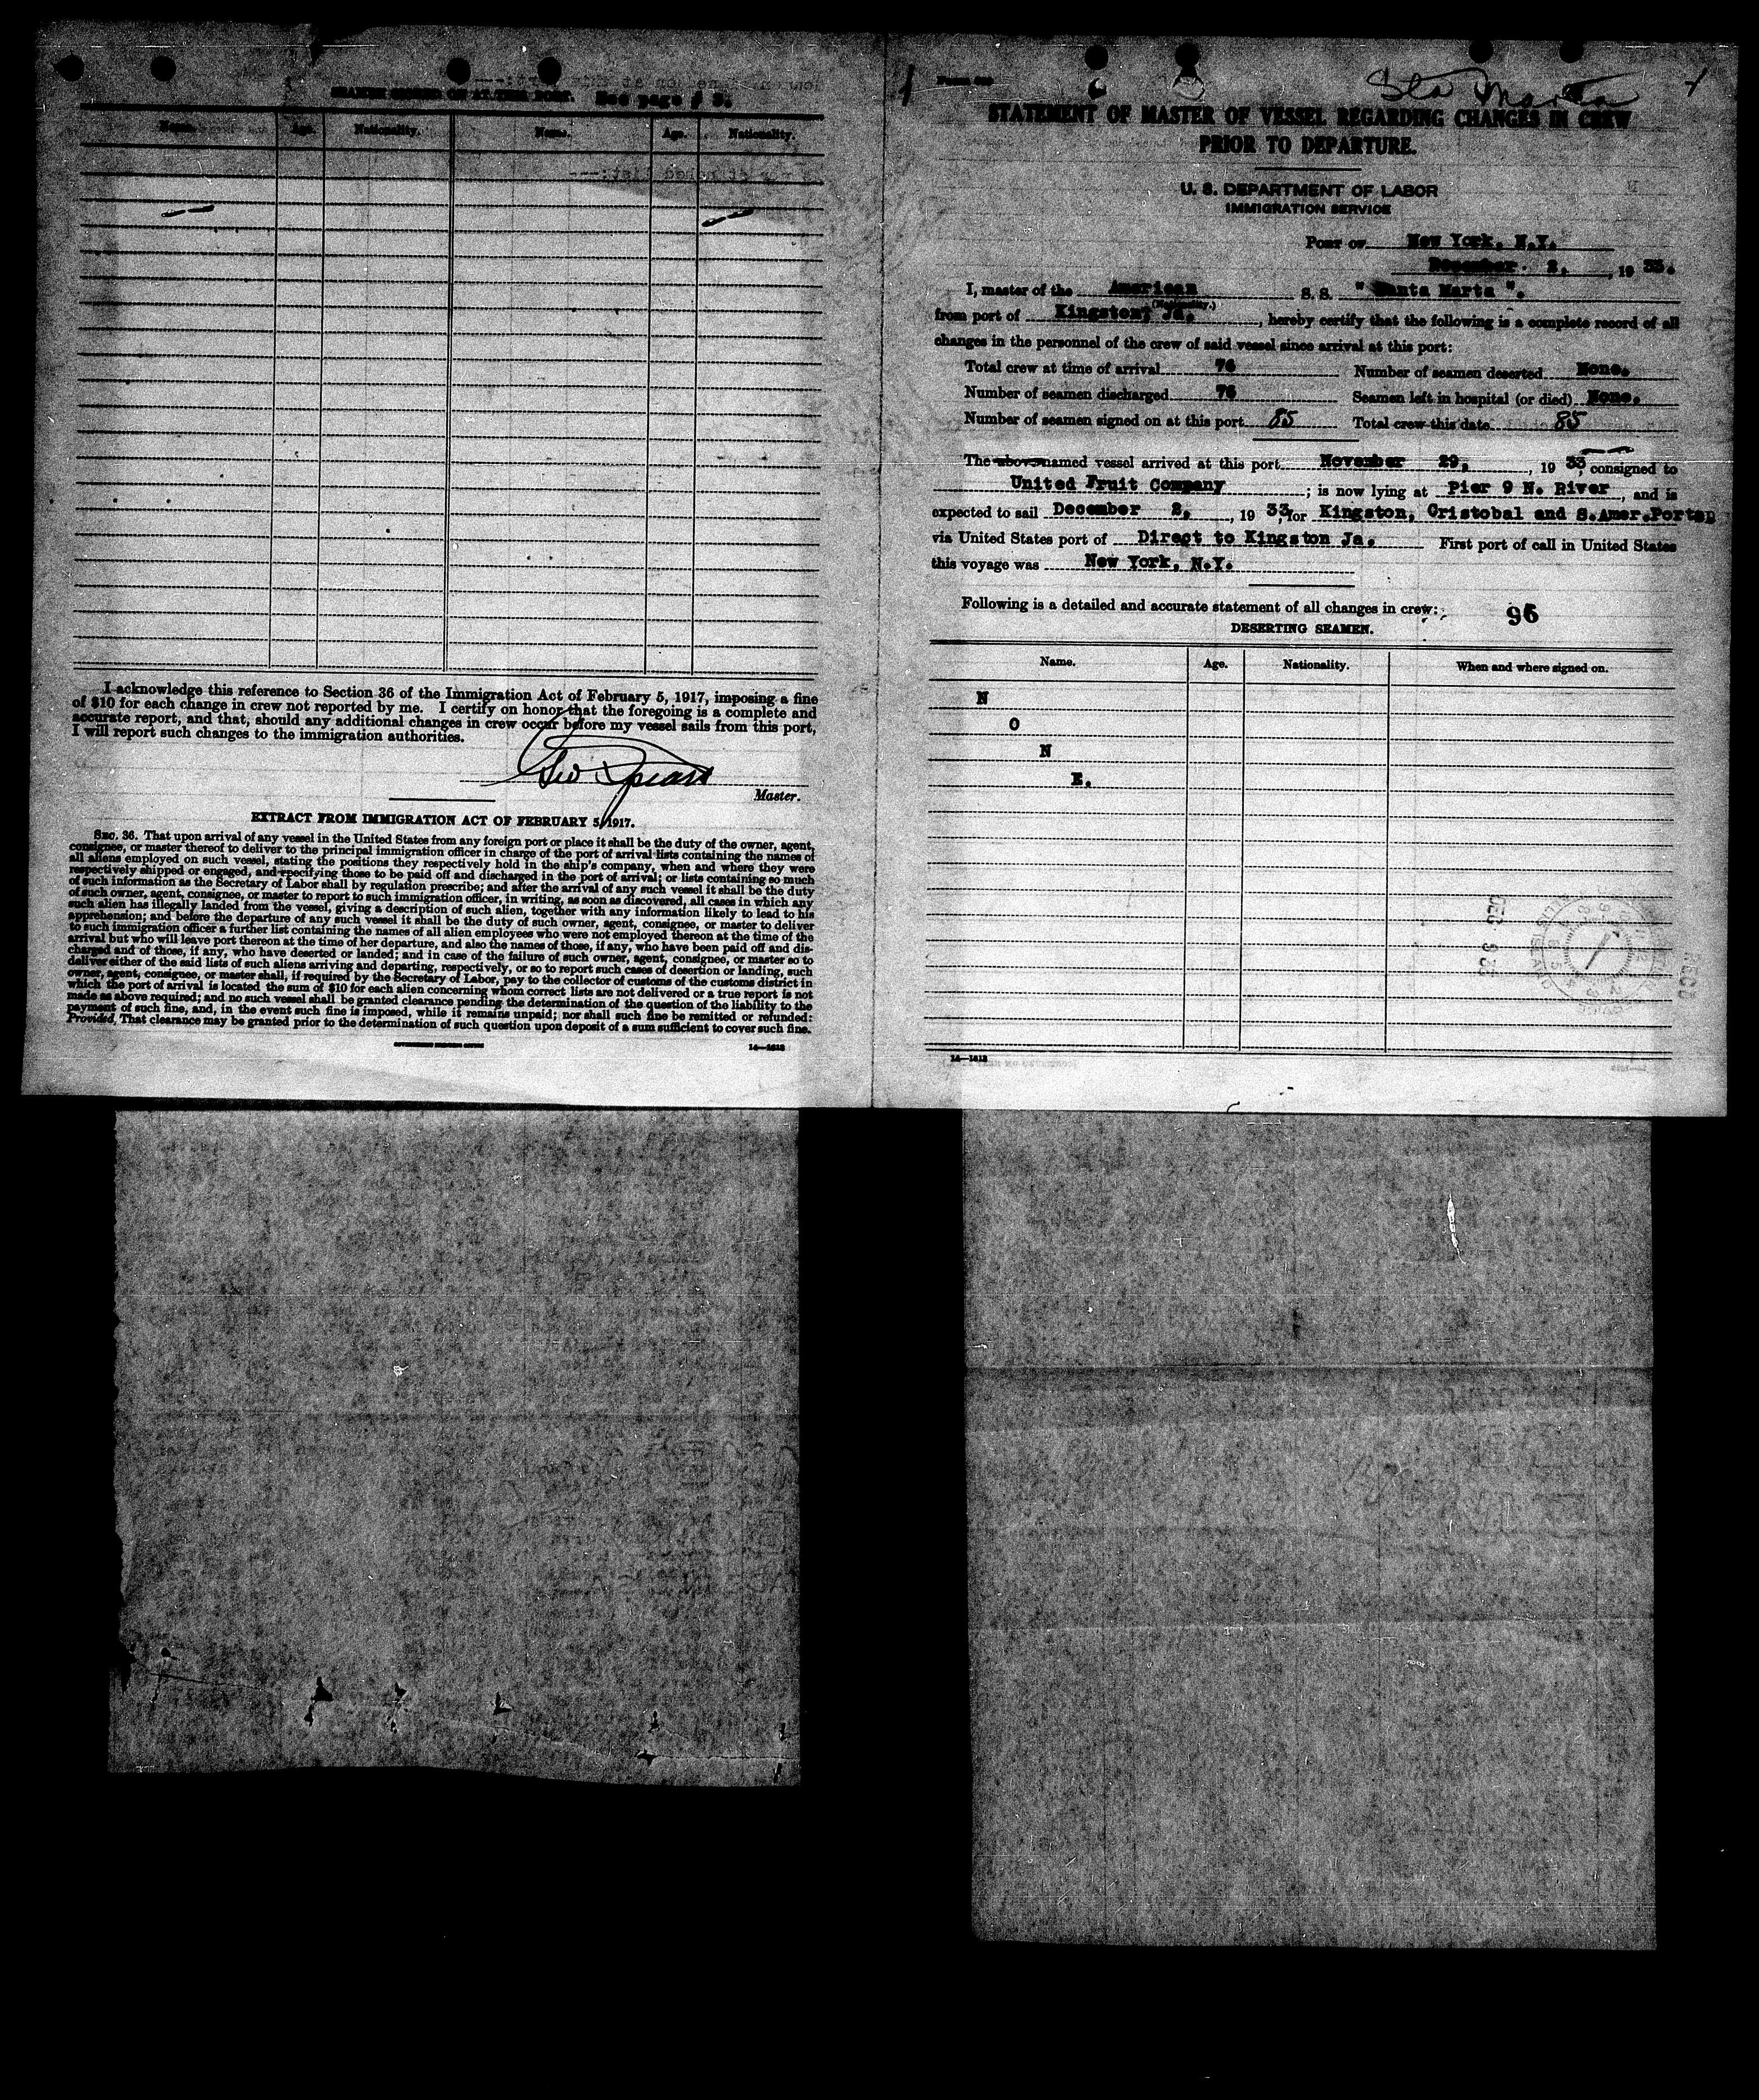 SEAMEN SIGNED ON AT THIS PORT. See page # 3.
Name. Age. Nationality. Name. Age. Nationality.
I acknowledge this reference to Section 36 of the Immigration Act of February 5, 1917, imposing a fine
of $10 for each change in crew not reported by me. I certify on honor that the foregoing is a complete and
accurate report, and that, should any additional changes in crew occur before my vessel sails from this port,
I will report such changes to the immigration authorities.
Geo Spears
Master.
EXTRACT FROM IMMIGRATION ACT OF FEBRUARY 5, 1917.
SEC. 36. That upon arrival of any vessel in the United States from any foreign port or place it shall be the duty of the owner, agent,
consignee, or master thereof to deliver to the principal immigration officer in charge of the port of arrival lists containing the names of
all aliens employed on such vessel, stating the positions they respectively hold in the ship's company, when and where they were
respectively shipped or engaged, and specifying those to be paid off and discharged in the port of arrival; or lists containing so much
of such information as the Secretary of Labor shall by regulation prescribe; and after the arrival of any such vessel it shall be the duty
of such owner, agent, consignee, or master to report to such immigration officer, in writing, as soon as discovered, all cases in which any
such alien has illegally landed from the vessel, giving a description of such alien, together with any information likely to lead to his
apprehension; and before the departure of any such vessel it shall be the duty of such owner, agent, consignee, or master to deliver
to such immigration officer a further list containing the names of all alien employees who were not employed thereon at the time of the
arrival but who will leave port thereon at the time of her departure, and also the names of those, if any, who have been paid off and dis-
charged and of those, if any, who have deserted or landed; and in case of the failure of such owner, agent, consignee, or master so to
deliver either of the said lists of such aliens arriving and departing, respectively, or so to report such cases of desertion or landing, such
owner, agent, consignee, or master shall, if required by the Secretary of Labor, pay to the collector of customs of the customs district in
which the port of arrival is located the sum of $10 for each alien concerning whom correct lists are not delivered or a true report is not
made as above required; and no such vessel shall be granted clearance pending the determination of the question of the liability to the
payment of such fine, and, in the event such fine is imposed, while it remains unpaid; nor shall such fine be remitted or refunded:
Provided, That clearance may be granted prior to the determination of such question upon deposit of a sum sufficient to cover such fine.
14—1613
Sta Marta
STATEMENT OF MASTER OF VESSEL REGARDING CHANGES IN CREW
PRIOR TO DEPARTURE.
U. S. DEPARTMENT OF LABOR
IMMIGRATION SERVICE
PORT OF New York, N.Y.
December. 2, , 19 33.
I, master of the American S. S. " Santa Marta ".
(Nationality.)
from port of Kingston, Ja. , hereby certify that the following is a complete record of all
changes in the personnel of the crew of said vessel since arrival at this port:
Total crew at time of arrival 76 Number of seamen deserted None.
Number of seamen discharged 76 Seamen left in hospital (or died) None.
Number of seamen signed on at this port 85 Total crew this date 85
The above-named vessel arrived at this port November 29, , 19 33, consigned to
United Fruit Company ; is now lying at Pier 9 N. River , and is
expected to sail December 2, , 19 33, for Kingston, Cristobal and S.Amer.Ports
via United States port of Direct to Kingston Ja. First port of call in United States
this voyage was New York, N.Y.
Following is a detailed and accurate statement of all changes in crew: 96
DESERTING SEAMEN.
Name. Age. Nationality. When and where signed on.
N
O
N
E.
14—1613